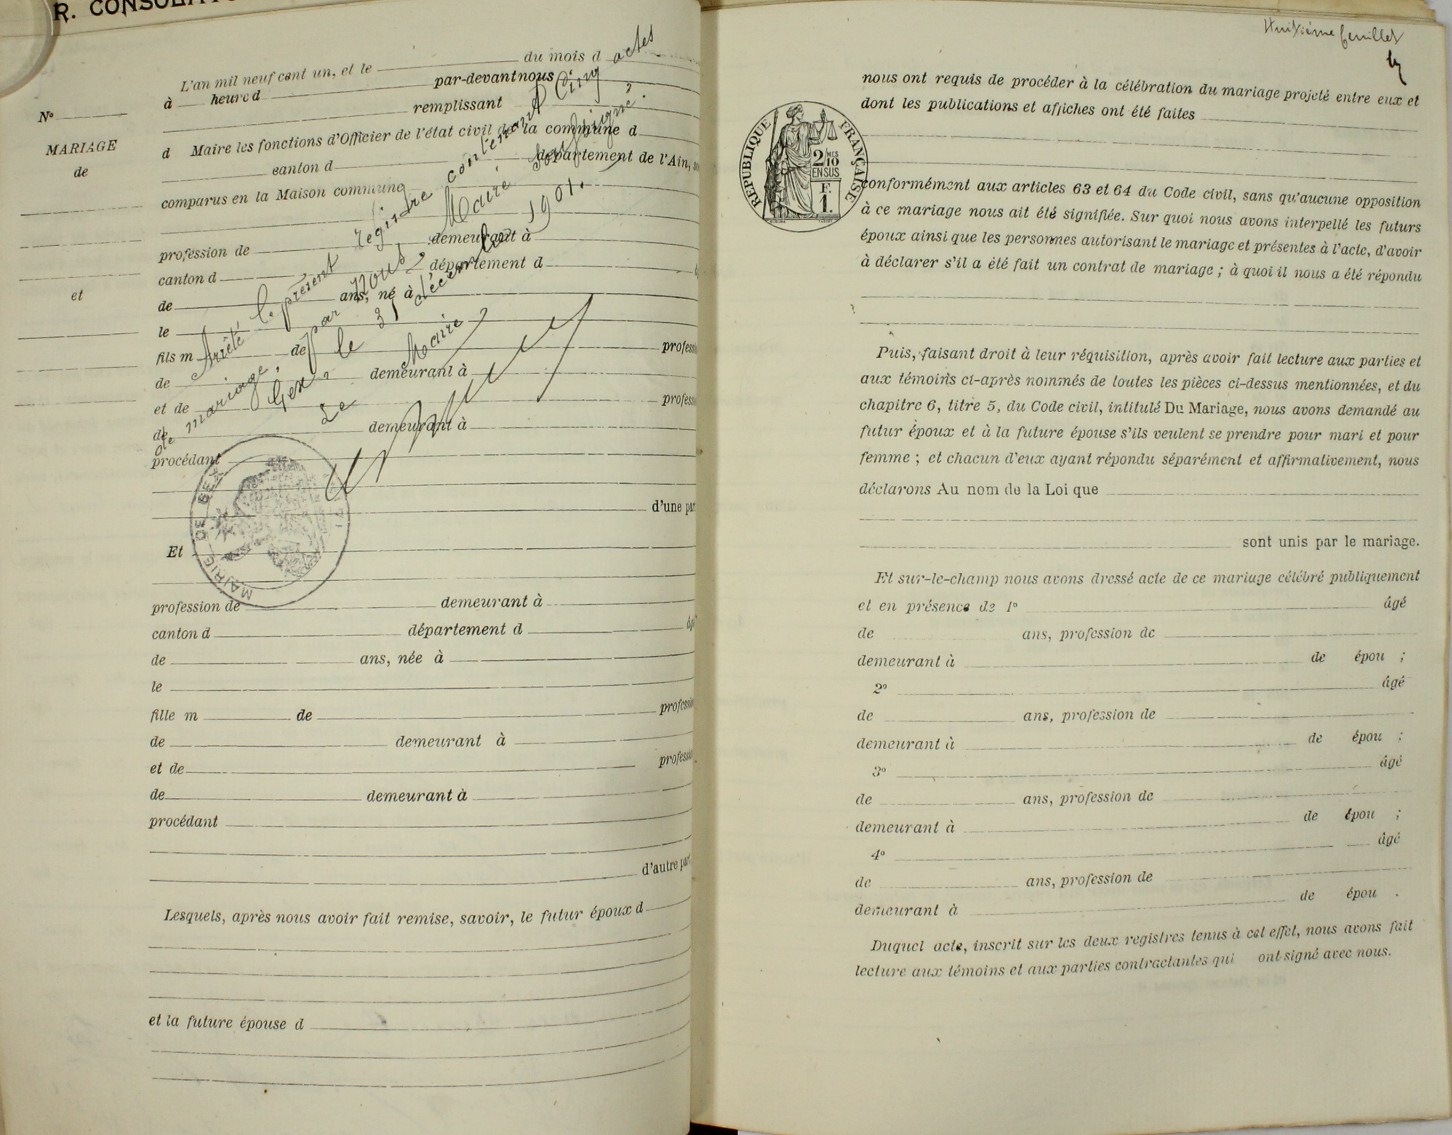 R. CONSOLAT
N°
MARIAGE
de
et
L'an mil neuf cent un, et le du mois d
à heure d par-devant nous
remplissant
d Maire les fonctions d'Officier de l'état civil de la commune d
canton d département de l'Ain,
comparus en la Maison commune
profession de demeurant à
canton d département d
de ans, né à
le
fils m de profess
de demeurant à
et de profess
de demeurant à
procédant
d'une par
Et
profession de demeurant à
canton d département d
de ans, née à
le
fille m de profess
de demeurant à
et de profess
de demeurant à
procédant
d'autre part
Lesquels, après nous avoir fait remise, savoir, le futur époux d
et la future épouse d
Arrêté le présent registre contenant Cinq actes
de mariage, par nous, Maire soussigné.
Gex, le 31 décembre 1901.
Le Maire
MAIRIE DE GEX
Huitième feuillet
nous ont requis de procéder à la célébration du mariage projeté entre eux et
dont les publications et affiches ont été faites
RÉPUBLIQUE FRANÇAISE
2/10
EN SUS
F.
1.
conformément aux articles 63 et 64 du Code civil, sans qu'aucune opposition
à ce mariage nous ait été signifiée. Sur quoi nous avons interpellé les futurs
époux ainsi que les personnes autorisant le mariage et présentes à l'acte, d'avoir
à déclarer s'il a été fait un contrat de mariage ; à quoi il nous a été répondu
Puis, faisant droit à leur réquisition, après avoir fait lecture aux parties et
aux témoins ci-après nommés de toutes les pièces ci-dessus mentionnées, et du
chapitre 6, titre 5, du Code civil, intitulé Du Mariage, nous avons demandé au
futur époux et à la future épouse s'ils veulent se prendre pour mari et pour
femme ; et chacun d'eux ayant répondu séparément et affirmativement, nous
déclarons Au nom de la Loi que
sont unis par le mariage.
Et sur-le-champ nous avons dressé acte de ce mariage célébré publiquement
et en présence de 1° âgé
de ans, profession de
demeurant à de épou ;
2° âgé
de ans, profession de
demeurant à de épou ;
3° âgé
de ans, profession de
demeurant à de épou ;
4° âgé
de ans, profession de
demeurant à de épou .
Duquel acte, inscrit sur les deux registres tenus à cet effet, nous avons fait
lecture aux témoins et aux parties contractantes qui ont signé avec nous.